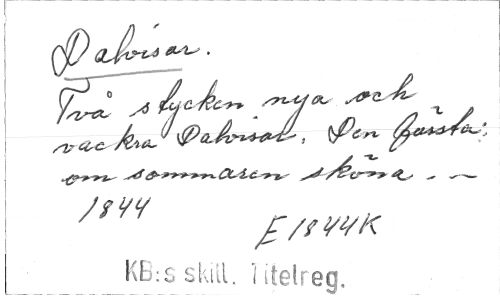 Dalvisor.
Två stycken nya och
vackra Dalvisor. Den första:
om sommaren sköna . —
1844
E 1844K
KB:s skill. Titelreg.